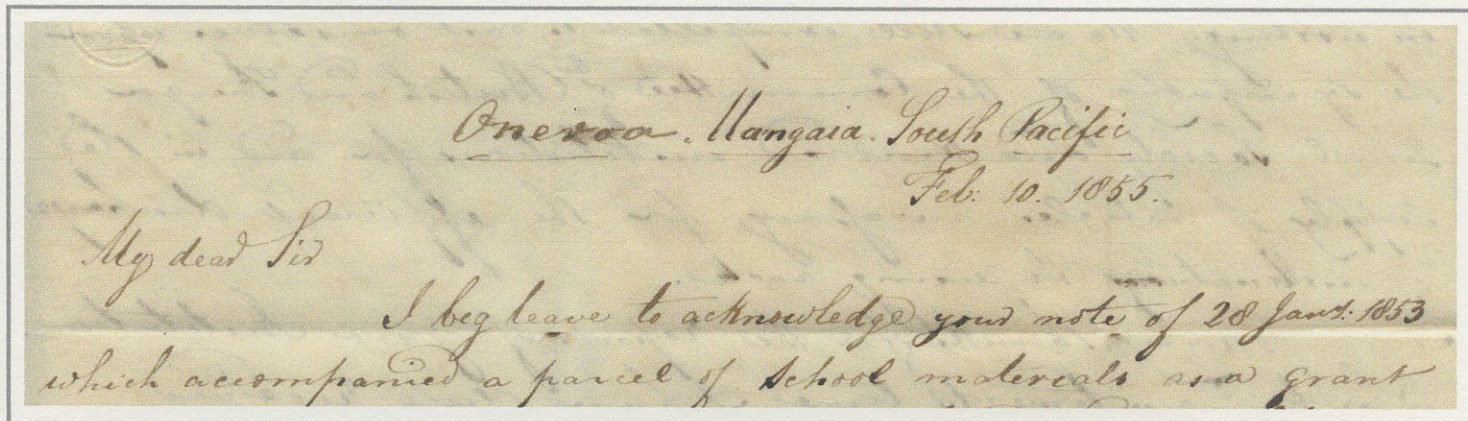 Oneroa. Mangaia. South Pacific
Feb: 10. 1855.
My dear Sir
I beg leave to acknowledge your note of 28 Jany. 1853
which accompanied a parcel of school materials as a grant